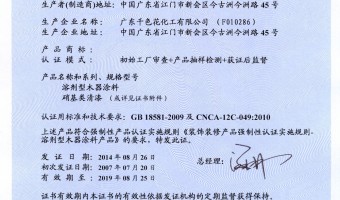 生产者(制造商)地址: 中国广东省江门市新会区今古洲今洲路 45 号
生产企业名称: 广东千色花化工有限公司 (F010286)
生产企业地址: 中国广东省江门市新会区今古洲今洲路 45 号
产品商标:
认证模式: 初始工厂审查+产品抽样检测+获证后监督
产品名称和系列、规格型号
溶剂型木器涂料
硝基类清漆 (或详见证书附件)
认证用标准和技术要求: GB 18581-2009 及 CNCA-12C-049:2010
上述产品符合强制性产品认证实施规则《装饰装修产品强制性认证实施规则-
溶剂型木器涂料产品》的要求, 特发此证。
发证日期 2014 年 08 月 26 日
总经理:
初次发证日期 2007 年 07 月 20 日
有效期至 2019 年 08 月 25 日
证书有效期内本证书的有效性依据发证机构的定期监督获得保持。